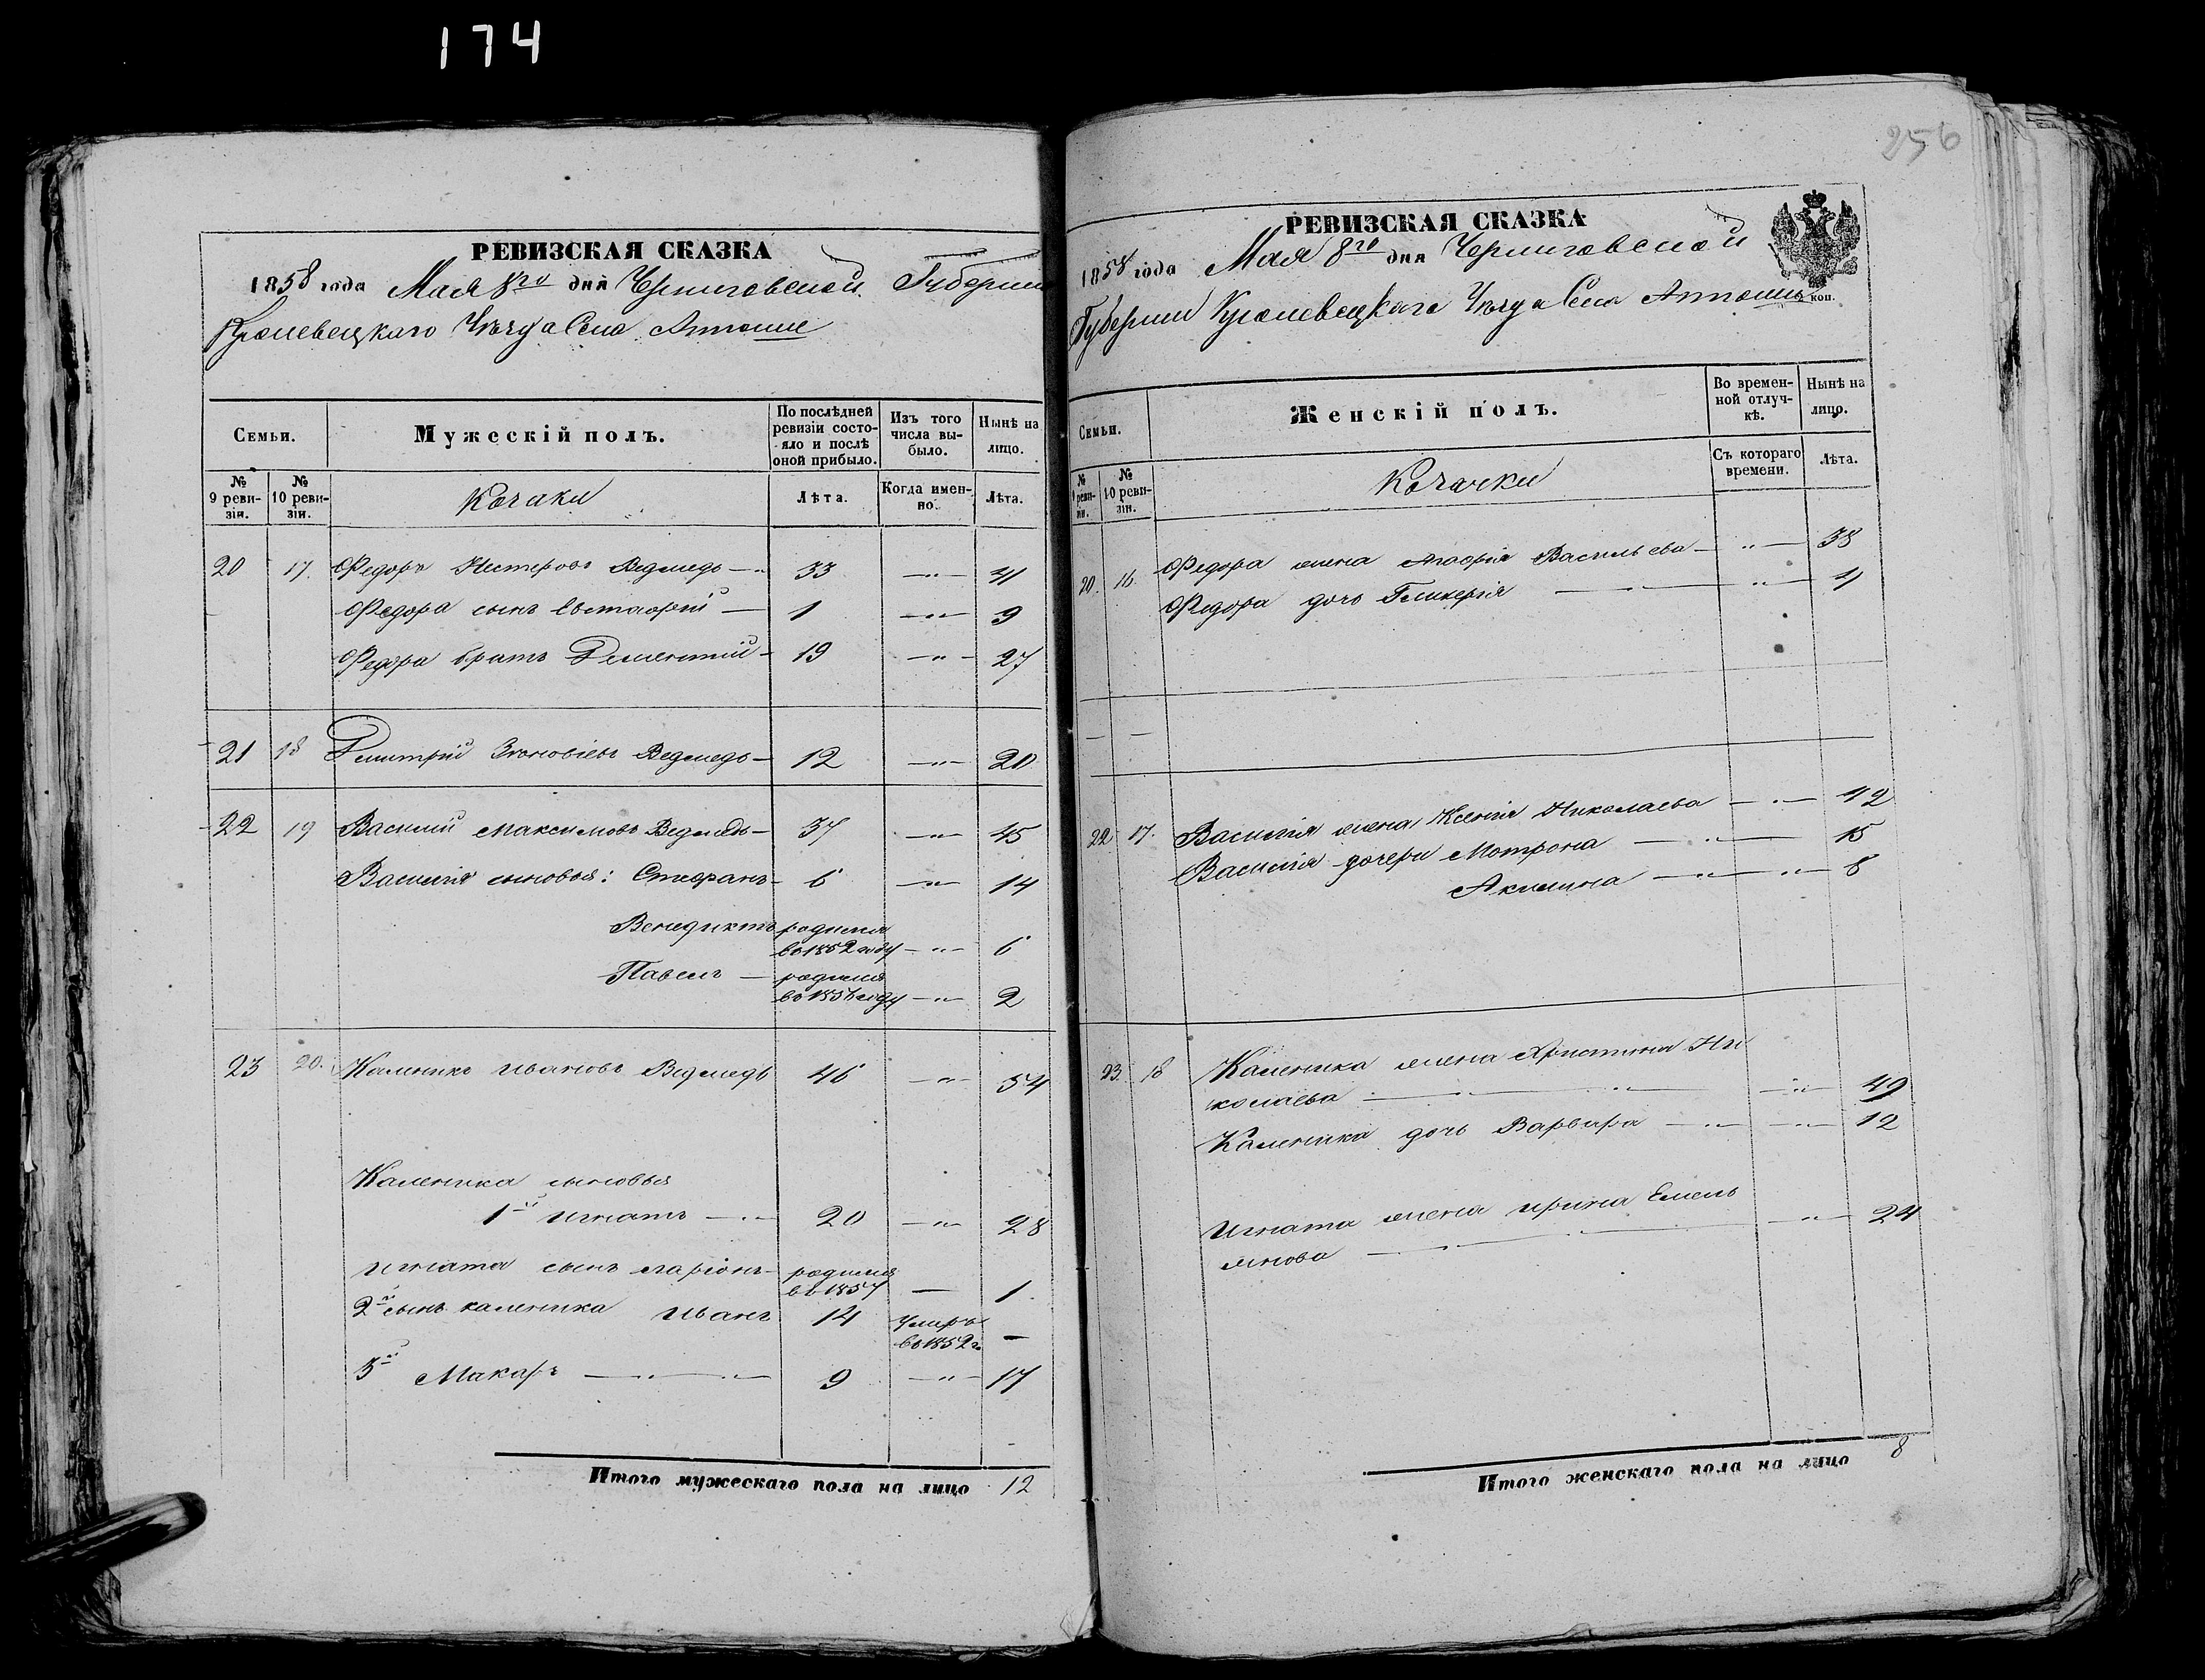 174
256
РЕВИЗСКАЯ СКАЗКА
1858 года Мая 8го дня Черниговской Губернии
Кролевецкаго Уѣзда Села
Семьи.
Мужескій полъ.
По послѣдней ревизіи состояло и послѣ оной прибыло.
Изъ того числа выбыло.
Нынѣ на лицо.
№ 9 ревизіи.
№ 10 ревизіи.
Козаки
Лѣта.
Когда именно.
Лѣта.
20 17. Федоръ Нестеровъ Ведмедь — 33 —"— 41
Федора сынъ Евстафій — 1 —"— 9
Федора братъ Дементій — 19 —"— 27
21 18 Дмитрій Зѣновіевъ Ведмедь — 12 —"— 20
22 19 Василій Максимовъ Ведмедь — 37 —"— 45
Василія сыновья: Стефанъ — 6 —"— 14
Венедиктъ родился
въ 1852 году —"— 6
Павелъ — родился
въ 1856 году —"— 2
23 20. Каленикъ Ивановъ Ведмедь 46 —"— 54
Каленика сыновья
1й Игнатъ —"— 20 —"— 28
Игната сынъ Ларіонъ — родился
въ 1857 — 1
2й сынъ Каленика Иванъ 14 умеръ
въ 1852 г. —
3й Макаръ —"—"— 9 —"— 17
Итого мужескаго пола на лицо 12
РЕВИЗСКАЯ СКАЗКА
1858 года Мая 8го дня Черниговской
коп.
Губернии Кролевецкаго Уѣзда Села
Семьи.
Женскій полъ.
Во временной отлучкѣ.
Нынѣ на лицо.
№ 9 ревизіи.
№ 10 ревизіи.
Козачки
Съ котораго времени.
Лѣта.
20. 16. Федора жена Агафія Васильева — "— 38
Федора дочь Гликерія — "— 4
— —
22 17. Василія жена Ксенія Николаева —"— 42
Василія дочери Мотрона —"— 15
Акилина —"—"— 8
23. 18 Каленика жена Христина Ни
колаева —"—"— —"— 49
Каленика дочь Варвара —"— —"— 12
Игната жена Ирина Емель
янова —"—"— —"— 24
Итого женскаго пола на лицо 8